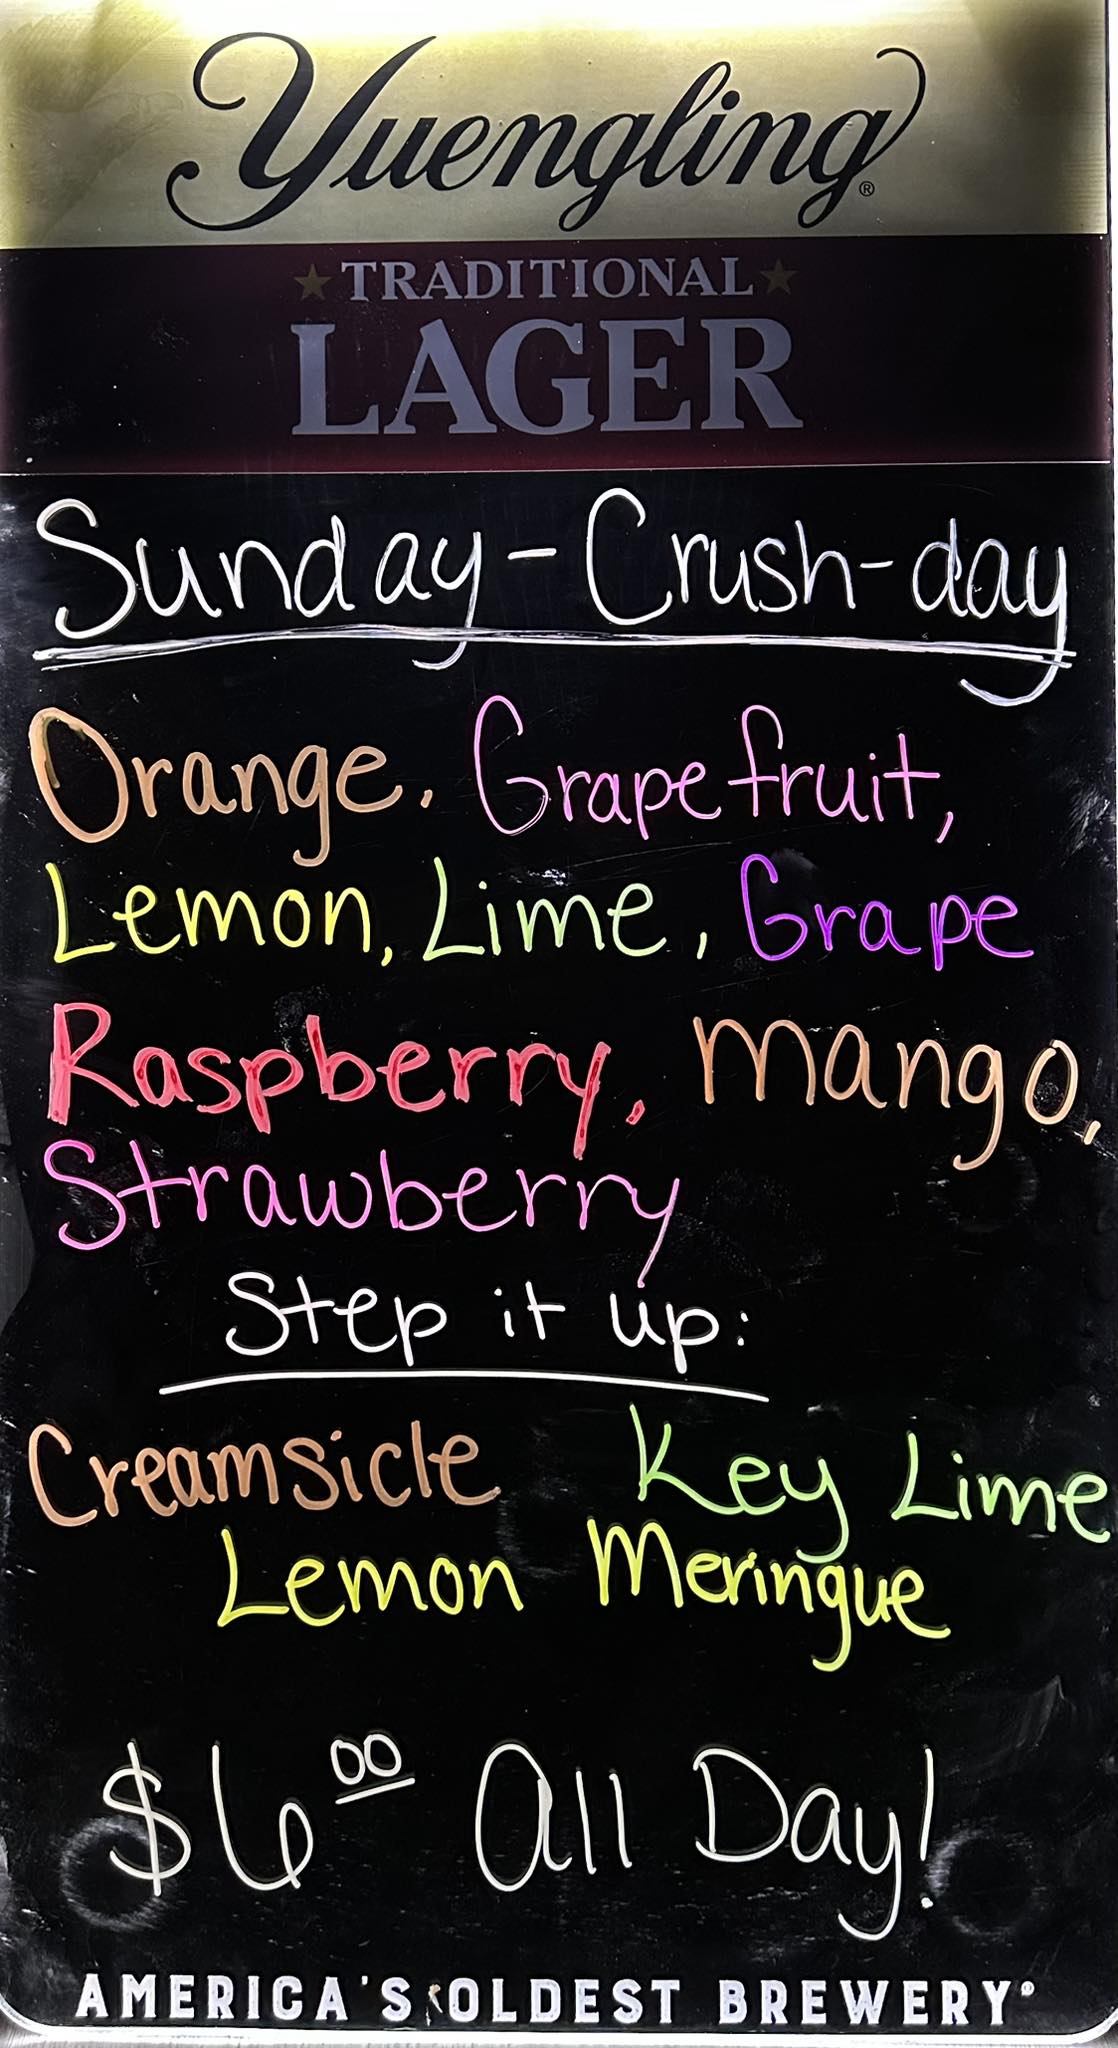 Yuengling®
TRADITIONAL
LAGER
Sunday - Crush-day
Orange. Grapefruit,
Lemon, Lime, Grape
Raspberry, Mango,
Strawberry
Step it up:
Creamsicle Key Lime
Lemon Meringue
$6.00 All Day!
AMERICA'S OLDEST BREWERY®